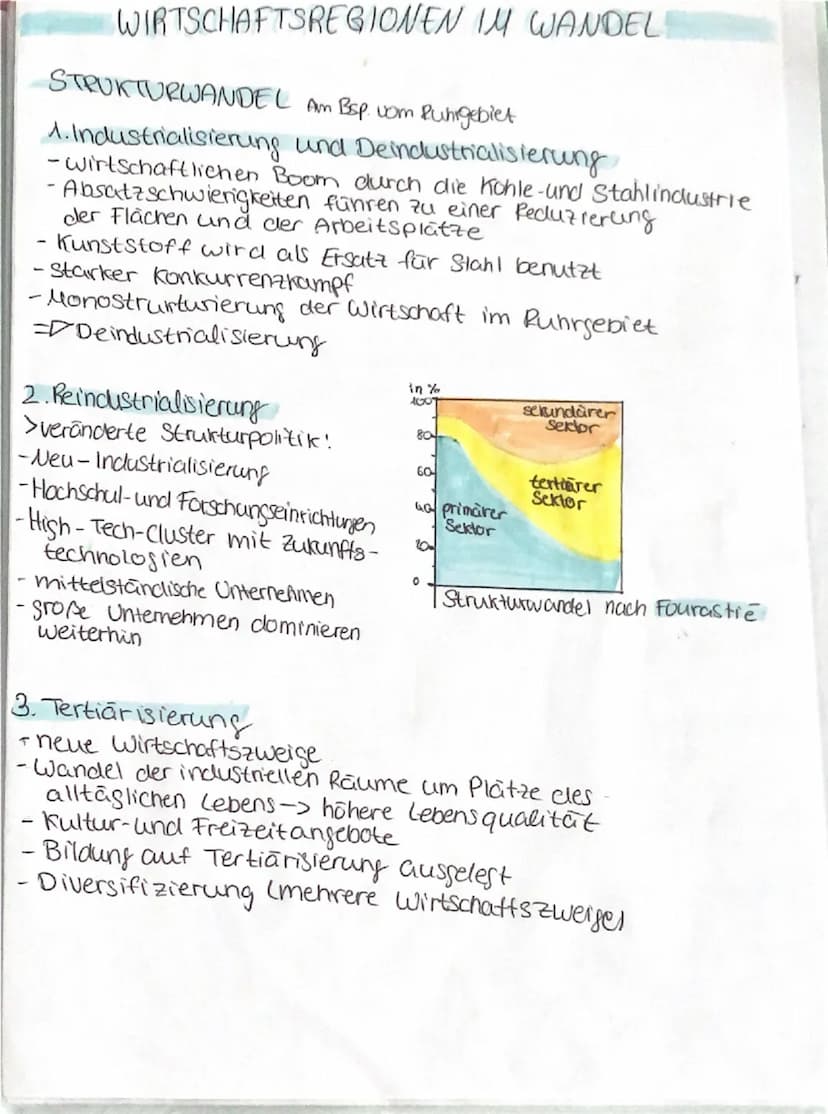 WIRTSCHAFTSREGIONEN IM WANDEL
STRUKTURWANDEL Am Bsp. vom Ruhrgebiet
1. Industrialisierung und Deindustrialisierung
- wirtschaftlichen Boom durch die Kohle- und Stahlindustrie
- Absatzschwierigkeiten führen zu einer Reduzierung
der Flächen und der Arbeitsplätze
- Kunststoff wird als Ersatz für Stahl benutzt
- Starker Konkurrenzkampf
- Monostrukturierung der Wirtschaft im Ruhrgebiet
=> Deindustrialisierung
2. Reindustrialisierung
> veränderte Strukturpolitik!
- Neu-Industrialisierung
- Hochschul- und Forschungseinrichtungen
- High-Tech-Cluster mit Zukunfts-
technologien
- mittelständische Unternehmen
- große Unternehmen dominieren
weiterhin
in %
100
80
60
40
20
0
sekundärer
Sektor
tertiärer
Sektor
primärer
Sektor
Strukturwandel nach Fourastié
3. Tertiärisierung
- neue Wirtschaftszweige
- Wandel der industriellen Räume um Plätze des
alltäglichen Lebens -> höhere Lebensqualität
- Kultur- und Freizeitangebote
- Bildung auf Tertiärisierung ausgelegt
- Diversifizierung (mehrere Wirtschaftszweige)